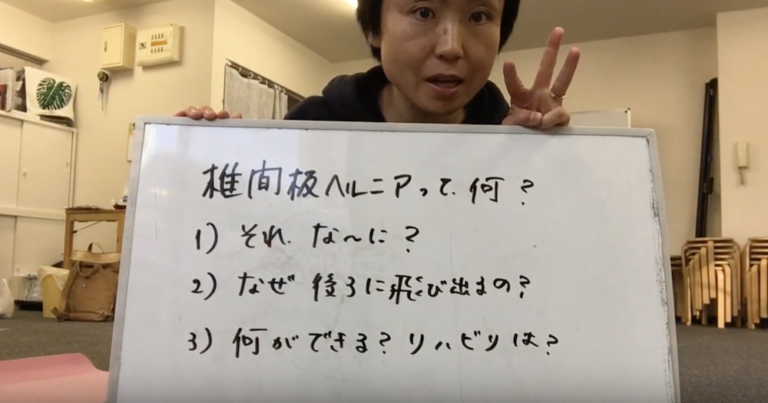 椎間板ヘルニアって、何?
1) それ、な〜に?
2) なぜ 後ろに飛び出るの?
3) 何ができる? リハビリは?